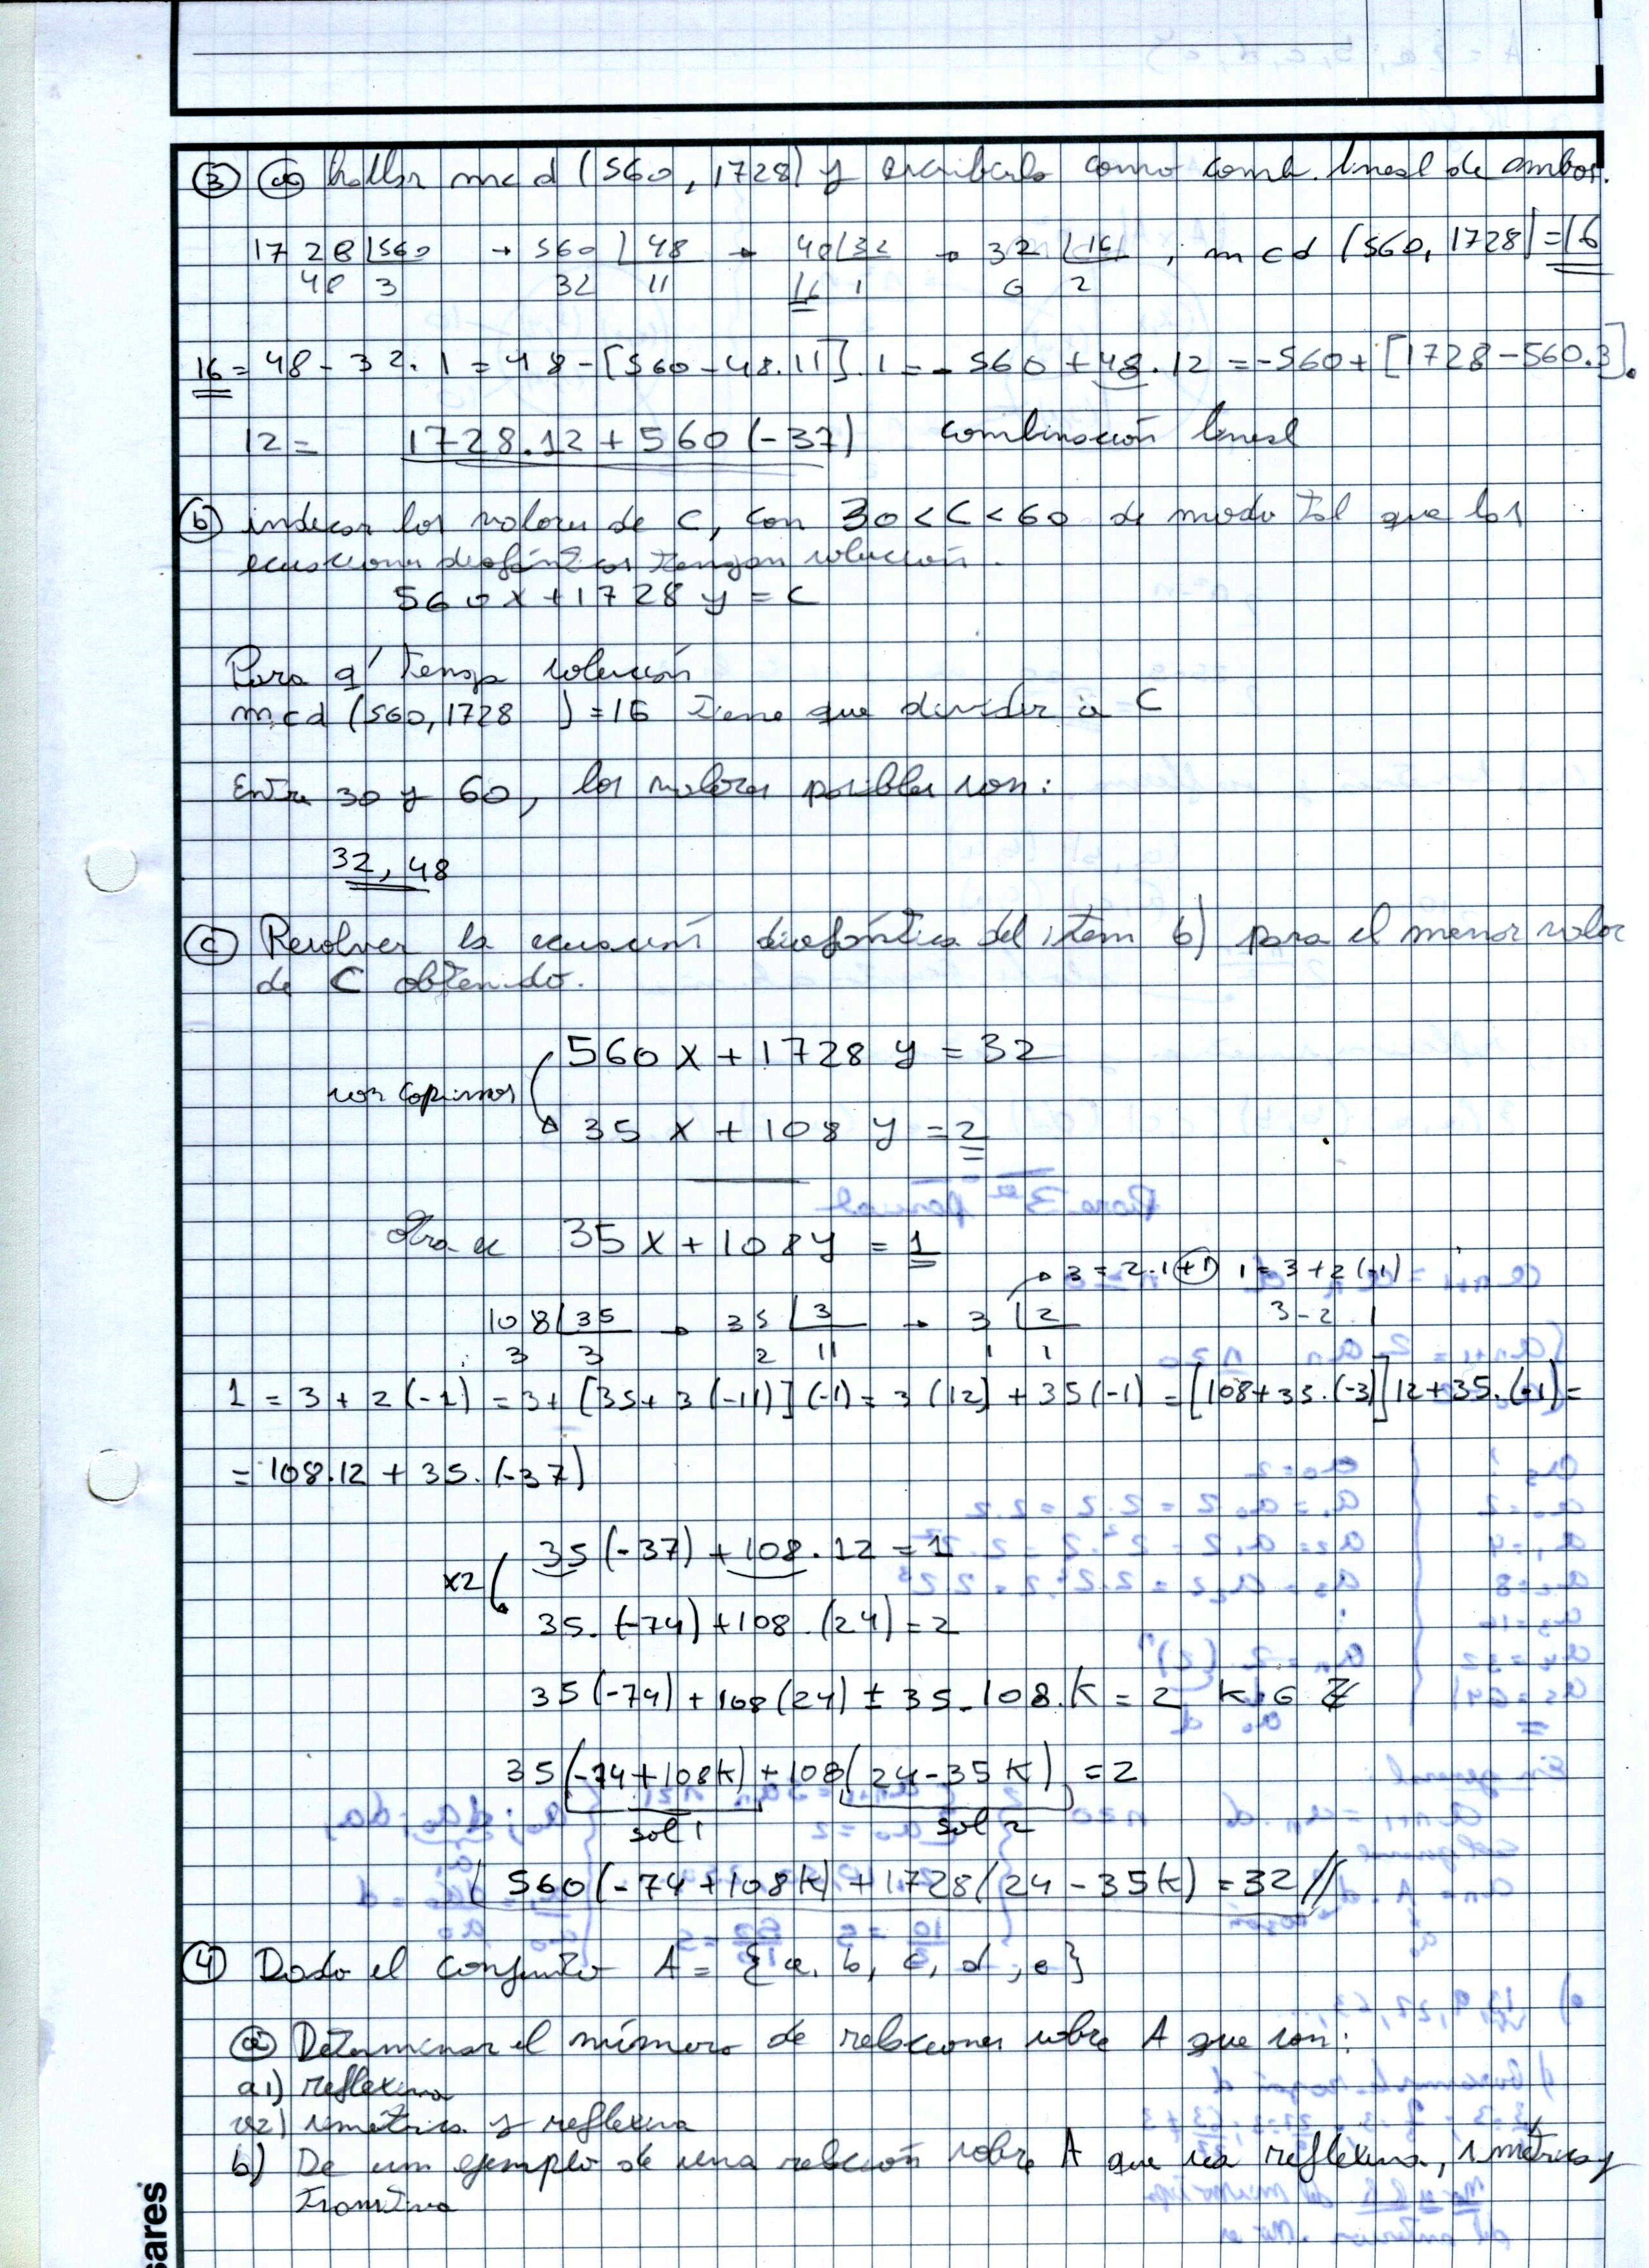 ③ ⓐ hallar mcd (560, 1728) y escribirlo como comb. lineal de ambos.
1728 |560 → 560 |48 → 48 |32 → 32 |16 ; mcd (560, 1728) = 16
48 3 32 11 16 1 0 2
16 = 48 - 32.1 = 48 - [560 - 48.11].1 = -560 + 48.12 = -560 + [1728 - 560.3].
12 = 1728.12 + 560 (-37) combinación lineal
ⓑ indicar los valores de C, con 30 < C < 60 de modo tal que las
ecuaciones diofánticas tengan solución.
560 x + 1728 y = C
Para q' tenga solución
mcd (560, 1728 ) = 16 tiene que dividir a C
Entre 30 y 60, los valores posibles son:
32, 48
ⓒ Resolver la ecuación diofántica del item b) para el menor valor
de C obtenido.
560 x + 1728 y = 32
son coprimos
35 x + 108 y = 2
Otra ec 35 x + 108 y = 1
→ 3 = 2.1 + 1 1 = 3 + 2 (-1)
108 |35 → 35 |3 → 3 |2 3 - 2 . 1
3 3 2 11 1 1
1 = 3 + 2 (-1) = 3 + [35 + 3 (-11)] (-1) = 3 (12) + 35 (-1) = [108 + 35.(-3)] 12 + 35.(-1) =
= 108.12 + 35.(-37)
35 (-37) + 108.12 = 1
x2
35.(-74) + 108.(24) = 2
35 (-74) + 108 (24) ± 35.108.K = 2 K ∈ Z
35 (-74 + 108K) + 108 (24 - 35K) = 2
sol 1 sol 2
560 (-74 + 108K) + 1728 (24 - 35K) = 32 //
④ Dado el conjunto A = {a, b, c, d, e}
ⓐ Determinar el número de relaciones sobre A que son:
a1) reflexiva
a2) simétrica y reflexiva
b) De un ejemplo de una relación sobre A que sea reflexiva, simétrica y
transitiva
sares